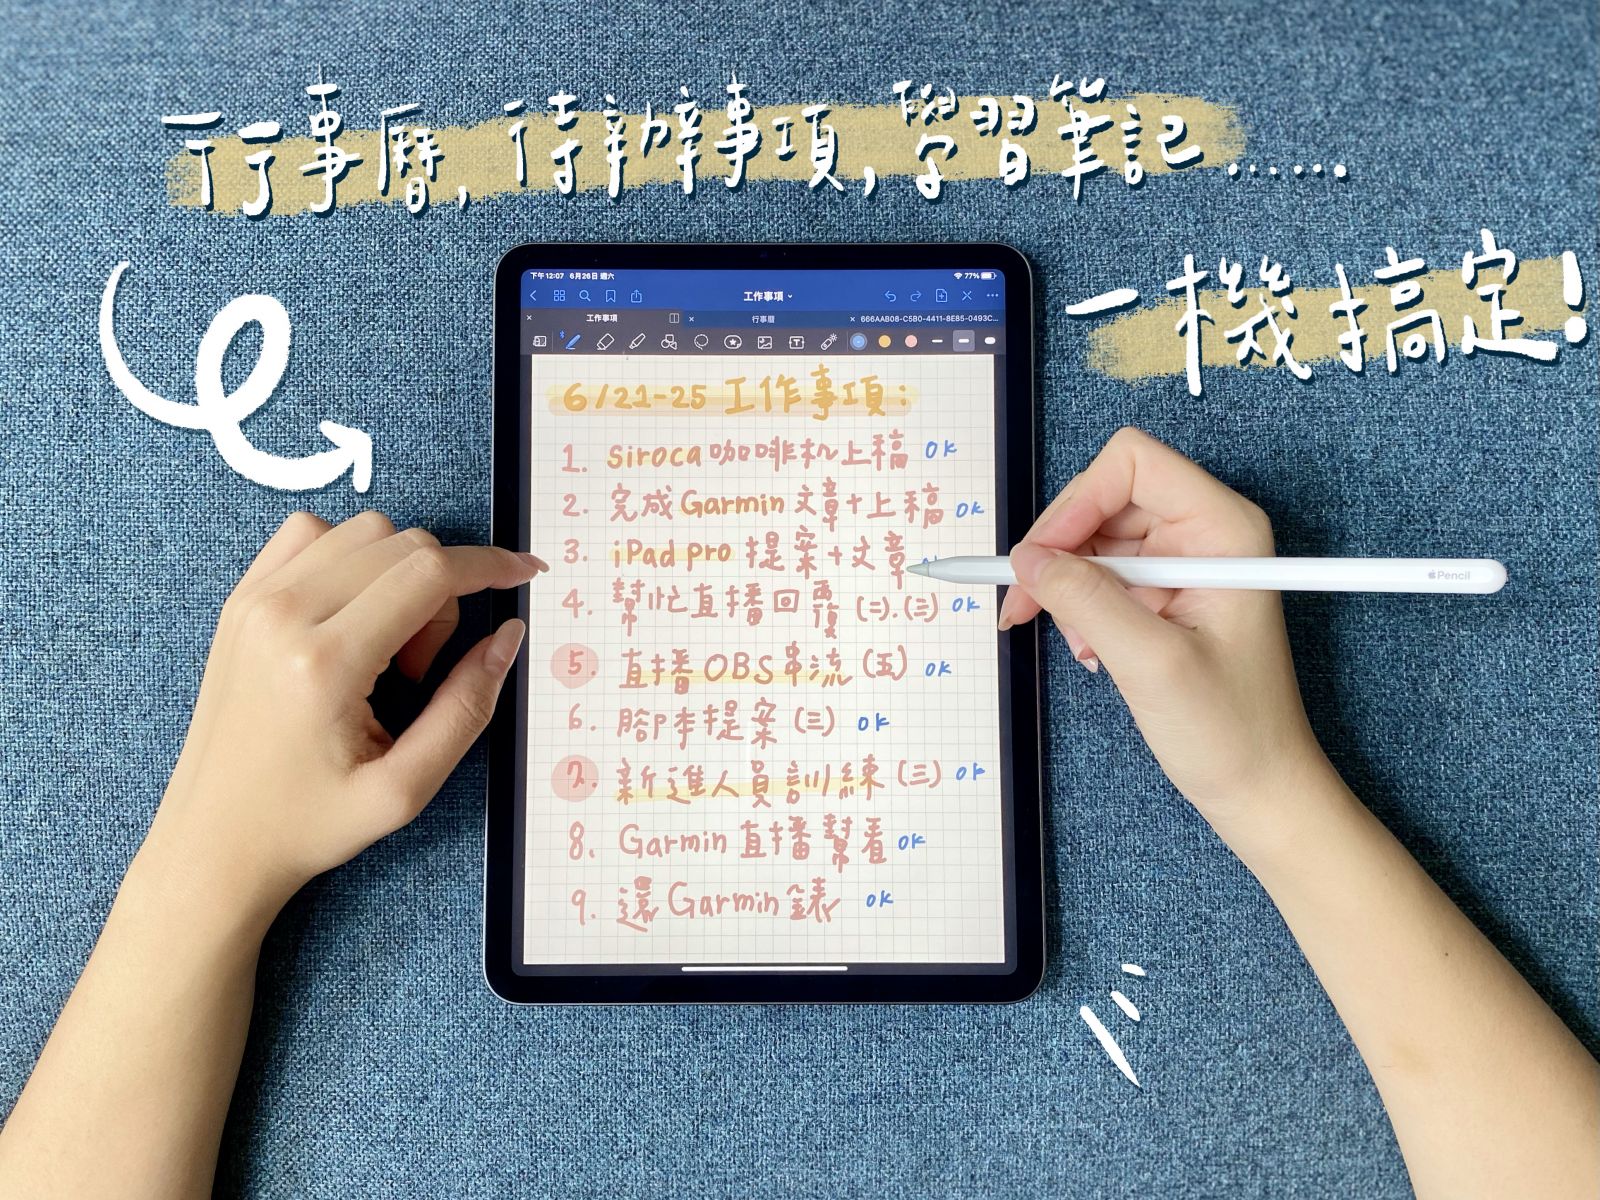 行事曆,待辦事項,學習筆記......
一機搞定!
下午12:07 6月26日 週六 77%
工作事項
工作事項 行事曆 666AAB08-C5B0-4411-8E85-0493C...
6/21-25 工作事項:
1. siroca 咖啡机上稿 OK
2. 完成 Garmin 文章+上稿 OK
3. iPad pro 提案+文章
4. 幫忙直播回覆 (二).(三) OK
5. 直播 OBS 串流 (五) OK
6. 腳本提案 (三) OK
7. 新進人員訓練 (三) OK
8. Garmin 直播幫看 OK
9. 還 Garmin 錶 OK
Pencil